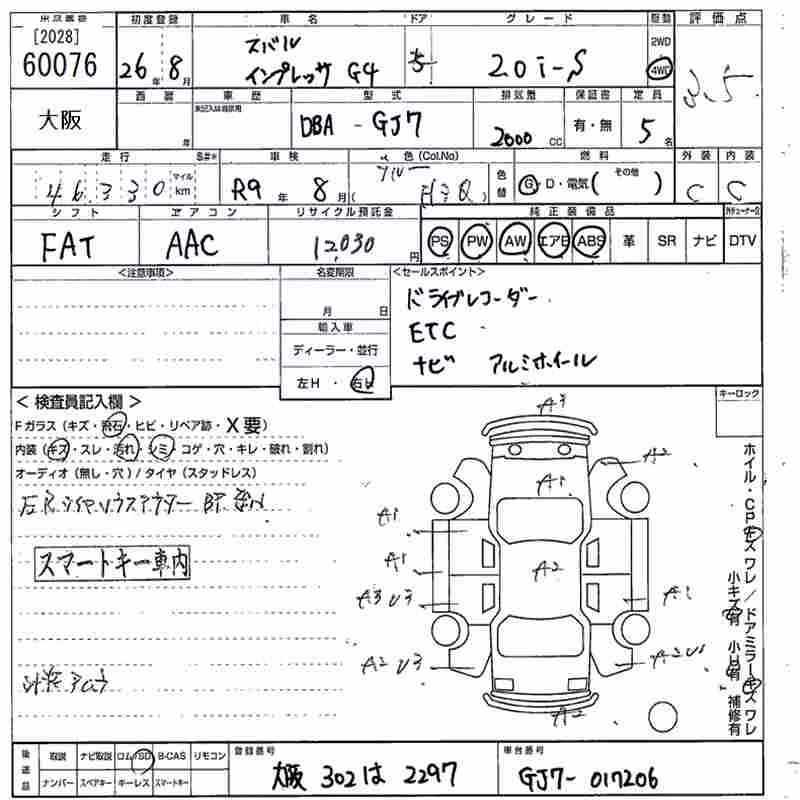 [2028]
60076
初度登録 車名 ドア グレード 駆動 評価点
26年 8月 スバル インプレッサ G4 20i-S 2WD 4WD 3.5
大阪
西暦 車歴 型式 排気量 保証書 定員
年 DBA - GJ7 2000cc 有・無 5名
走行 S#* 車検 色(Col.No) 燃料 外装 内装
46,330 マイル km R9年 8月 ブルー H3Q 色替 G・D・電気( その他 ) C C
シフト エアコン リサイクル預託金 純正装備品
FAT AAC 12,030円 PS PW AW エアB ABS 革 SR ナビ DTV
<注意事項> 名変期限 <セールスポイント>
月 日 ドライブレコーダー
輸入車 ETC
ディーラー・並行 ナビ アルミホイール
左H・右H
<検査員記入欄> キーロック
Fガラス(キズ・飛石・ヒビ・リペア跡・X要)
内装(キズ・スレ・汚れ・シミ・コゲ・穴・キレ・破れ・割れ)
オーディオ(無し・穴)/タイヤ(スタッドレス)
スマートキー車内
A3
A2
A1
A1
A1
A2
A3 U3
A1
A2 U3
A2 U1
A2
ホイル・CPキズワレ/ドアミラーキズワレ
小キズ有 小U有 補修有
後送品 取説 ナビ取説 ロム・SD B-CAS リモコン 登録番号 車台番号
ナンバー スペアキー キーレス スマートキー 大阪 302 は 2297 GJ7-017206